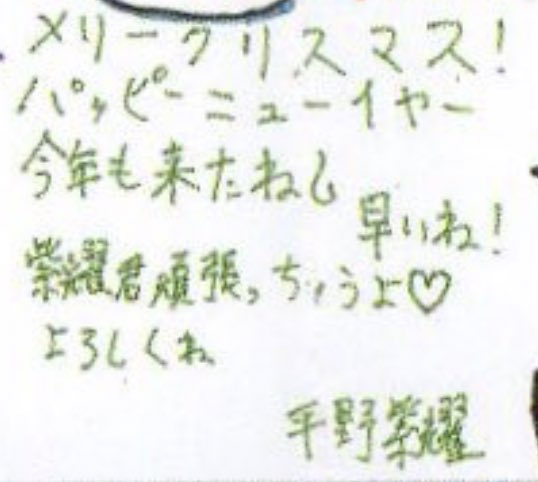 メリークリスマス!
パッピーニューイヤー
今年も来たねし
早いね!
紫耀君頑張っちょうよ♡
よろしくね
平野紫耀